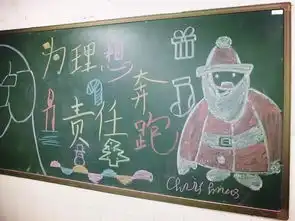 为理想
奔跑
责任
Christmas